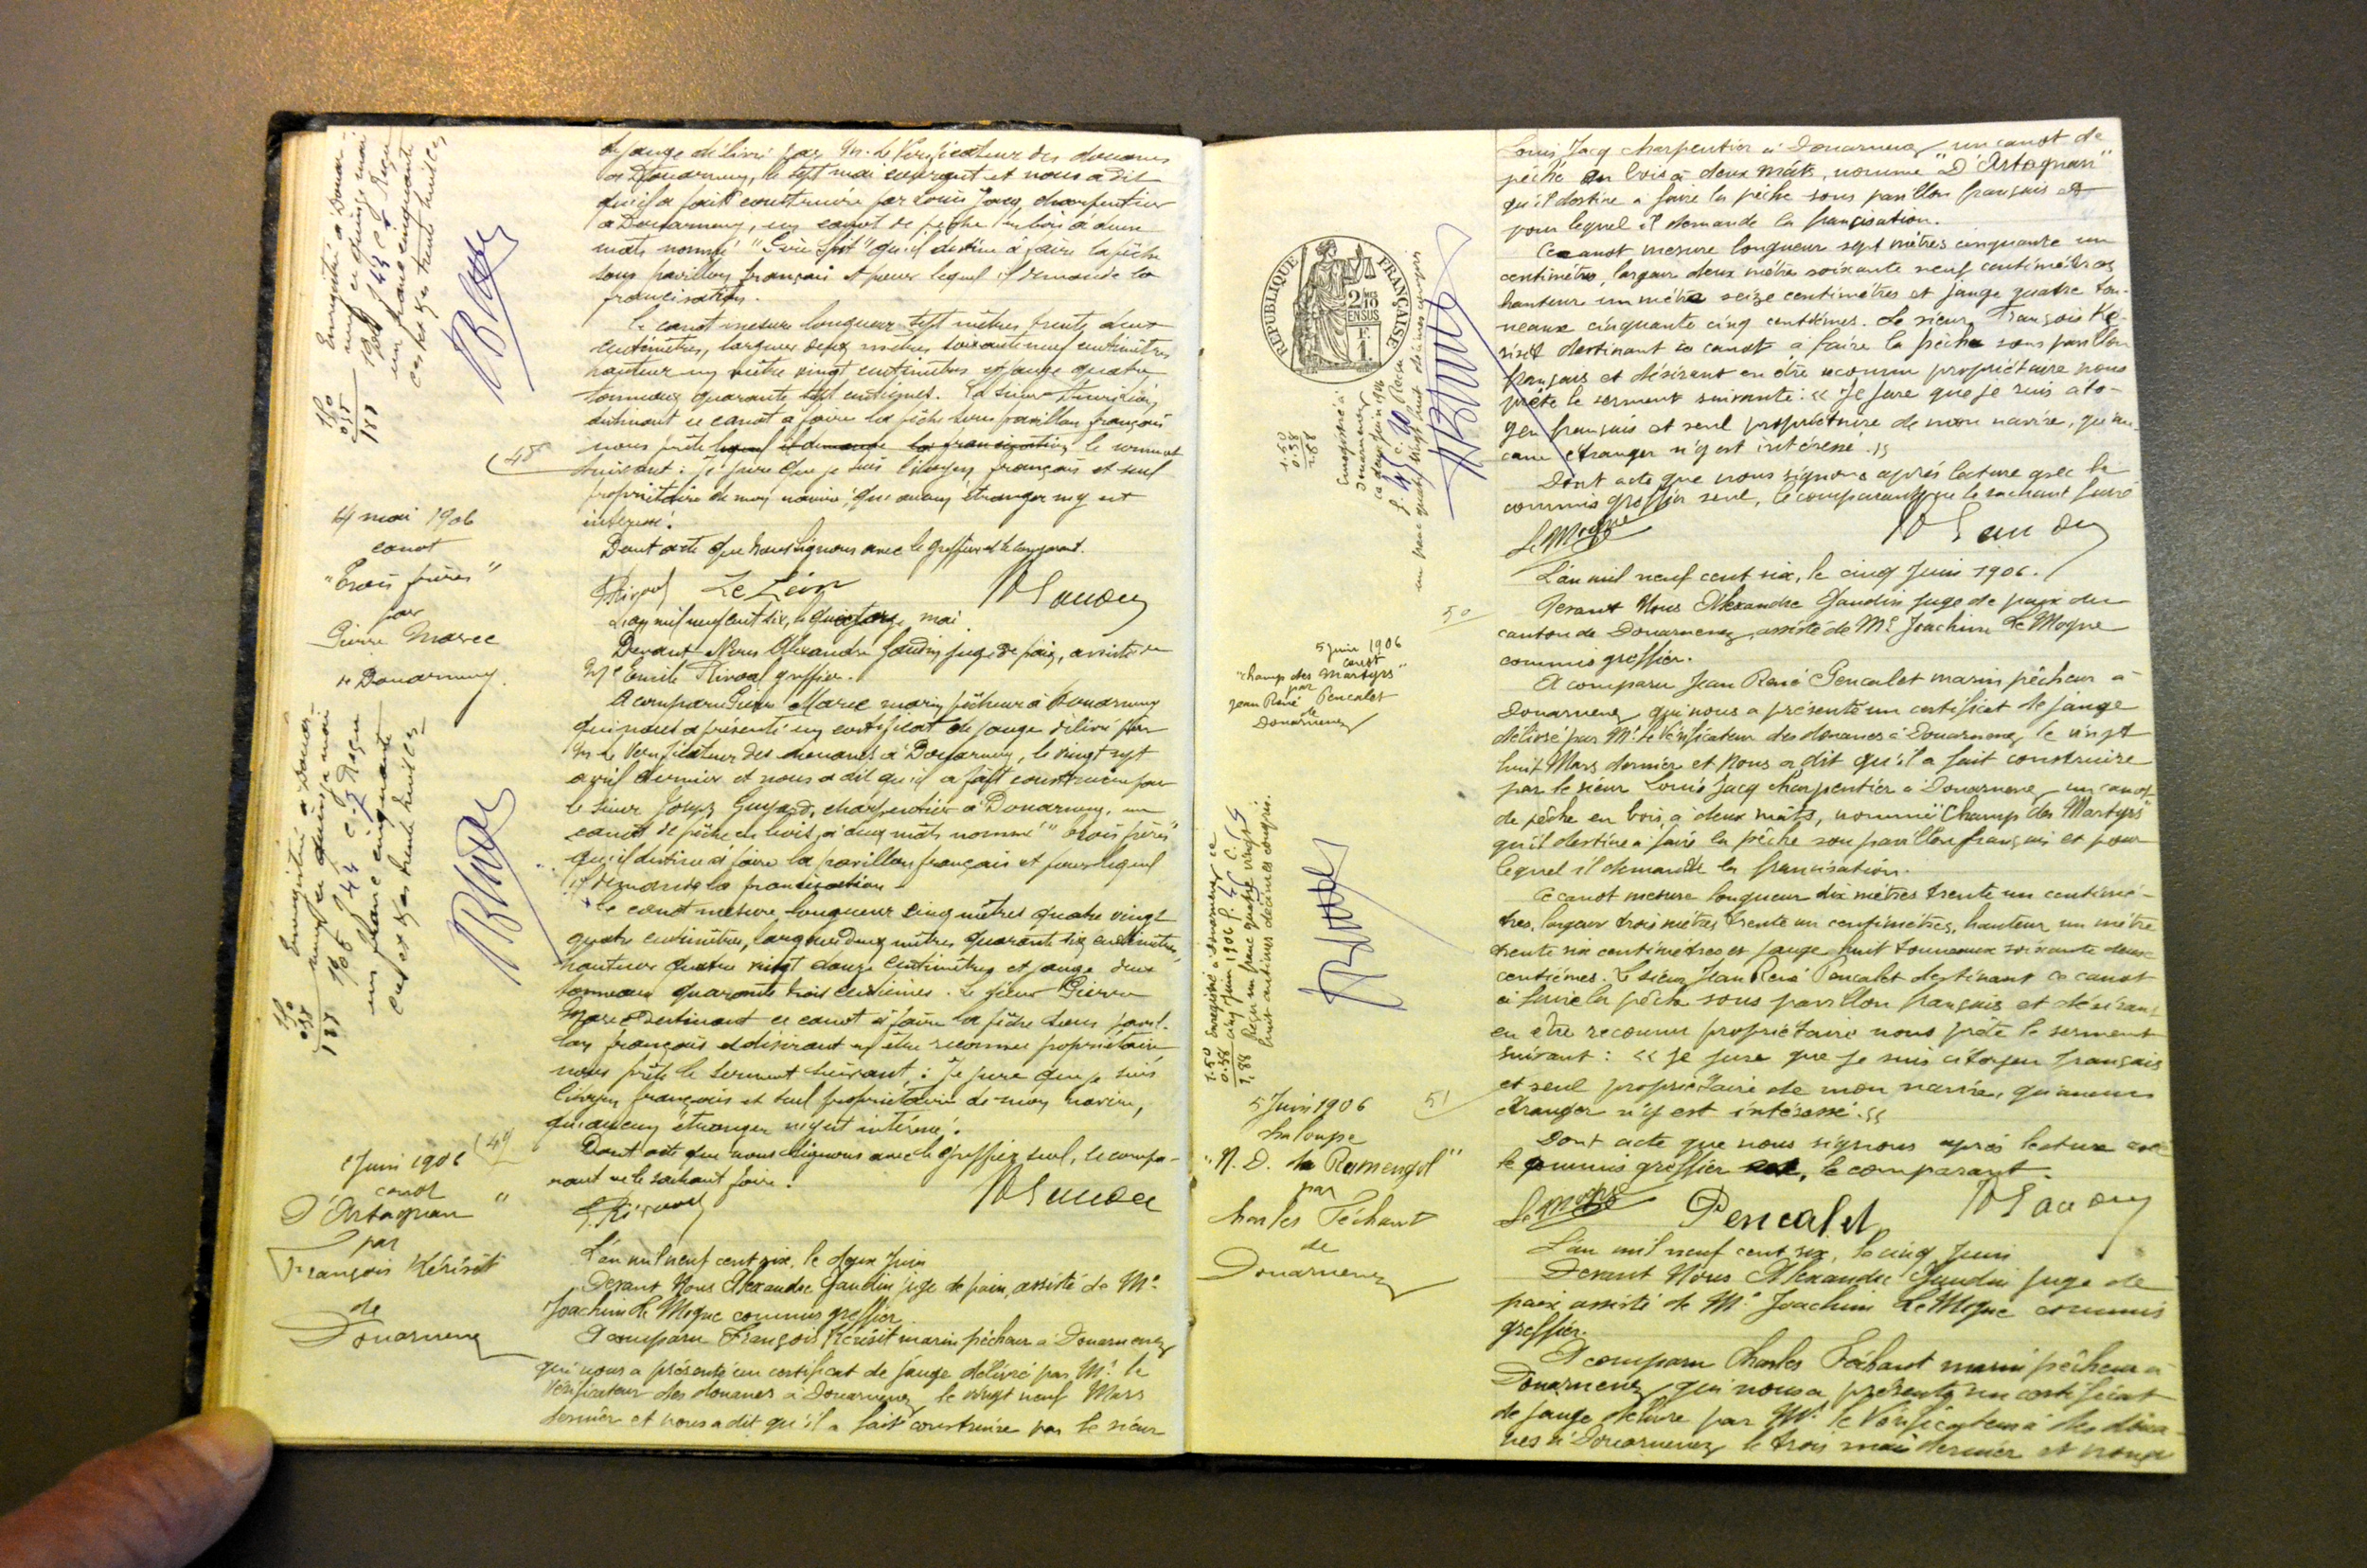 de jauge délivré par Mr. le Vérificateur des douanes
de Douarnenez, le sept mai courant et nous a dit
qu'il a fait construire par Louis Jacq, charpentier
à Douarnenez, un canot de pêche en bois à deux
mâts nommé qu'il destine à faire la pêche
sous pavillon français et pour lequel il demande la
francisation.
le canot mesure longueur sept mètres trente deux
centimètres, largeur deux mètres soixante neuf centimètres
hauteur un mètre vingt centimètres et jauge quatre
tonneaux quarante sept centièmes. Le sieur
destinant ce canot à faire la pêche sous pavillon français
nous prête lequel il demande la francisation le serment
suivant : Je jure que je suis citoyen français et seul
propriétaire de mon navire, qu'aucun étranger n'y est
intéressé.
Dont acte que nous signons avec le greffier et le comparant.
ERivoal Le Léon
48
14 mai 1906
canot
"Trois frères"
par
Pierre Marec
de Douarnenez.
L'an mil neuf cent six, le quatorze mai.
Devant Nous Alexandre Gaudin juge de paix, assisté de
Me Emile Rivoal greffier.
A comparu Pierre Marec marin pêcheur à Douarnenez
qui nous a présenté un certificat de jauge délivré par
Mr le Vérificateur des douanes à Douarnenez, le vingt sept
avril dernier et nous a dit qu'il a fait construire par
le sieur Joseph charpentier à Douarnenez, un
canot de pêche en bois, à deux mâts nommé "Trois frères"
qu'il destine à faire la pavillon français et pour lequel
il demande la francisation
le canot mesure longueur cinq mètres quatre vingt
quatre centimètres, largeur deux mètres quarante six centimètres,
hauteur quatre vingt douze centimètres et jauge deux
tonneaux quarante trois centièmes. Le sieur Pierre
Marec destinant ce canot à faire la pêche sous pavil-
lon français et désirant en être reconnu propriétaire
nous prête le serment suivant : Je jure que je suis
citoyen français et seul propriétaire de mon navire,
qu'aucun étranger n'y est intéressé.
Dont acte que nous signons avec le greffier seul, le compa-
rant ne le sachant faire.
E.Rivoal
49
2 Juin 1906
canot
D'Artagnan "
par
François Kérisit
de
Douarnenez
L'an mil neuf cent six, le deux Juin
Devant Nous Alexandre Gaudin juge de paix, assisté de Me
Joachim Le Moğne commis greffier
A comparu François Kérisit marin pêcheur à Douarnenez
qui nous a présenté un certificat de jauge délivré par Mr. le
Vérificateur des douanes à Douarnenez le vingt neuf Mars
dernier et nous a dit qu'il a fait construire par le sieur
Louis Jacq charpentier à Douarnenez un canot de
pêche en bois à deux mâts, nommé "D'Artagnan"
qu'il destine à faire la pêche sous pavillon français et
pour lequel il demande la francisation.
Ce canot mesure longueur sept mètres cinquante un
centimètres, largeur deux mètres soixante neuf centimètres
hauteur un mètre seize centimètres et jauge quatre ton-
neaux cinquante cinq centièmes. Le sieur François Ké-
risit destinant ce canot à faire la pêche sous pavillon
français et désirant en être reconnu propriétaire nous
prête le serment suivant : « Je jure que je suis cito-
yen français et seul propriétaire de mon navire, qu'au-
cun étranger n'y est intéressé. »
Dont acte que nous signons après lecture avec le
commis greffier seul, le comparant ne le sachant faire
RÉPUBLIQUE FRANÇAISE
2/10
EN SUS
1 F.
1.50
0.38
1.88
50
5 juin 1906
canot
"Champ des Martyrs"
par
Jean René Pencalet
de
Douarnenez
L'an mil neuf cent six, le cinq Juin 1906.
Devant Nous Alexandre Gaudin Juge de paix du
canton de Douarnenez assisté de Me Joachim Le Moğne
commis greffier.
A comparu Jean René Pencalet marin pêcheur à
Douarnenez qui nous a présenté un certificat de jauge
délivré par Mr. le Vérificateur des douanes à Douarnenez le vingt
huit Mars dernier et nous a dit qu'il a fait construire
par le sieur Louis Jacq charpentier à Douarnenez un canot
de pêche en bois, à deux mâts, nommé "Champ des Martyrs"
qu'il destine à faire la pêche sous pavillon français et pour
lequel il demande la francisation.
Ce canot mesure longueur dix mètres trente un centimè-
tres, largeur trois mètres trente un centimètres, hauteur un mètre
trente six centimètres et jauge huit tonneaux soixante deux
centièmes. Le sieur Jean René Pencalet destinant ce canot
à faire la pêche sous pavillon français et désirant
en être reconnu propriétaire nous prête le serment
suivant : « Je jure que je suis citoyen français
et seul propriétaire de mon navire, qu'aucun
étranger n'y est intéressé. »
Dont acte que nous signons après lecture avec
le commis greffier, le comparant.
Pencalet
1.50
0.38
1.88
Enregistré à Douarnenez le
cinq juin 1906
Reçu un franc quatre vingt
huit centimes décimes compris.
51
5 Juin 1906
chaloupe
"N. D. de Rumengol"
par
Charles Féchant
de
Douarnenez
L'an mil neuf cent six, le cinq Juin
Devant Nous Alexandre Gaudin Juge de
paix assisté de Me Joachim Le Moğne commis
greffier.
A comparu Charles Féchant marin pêcheur à
Douarnenez qui nous a présenté un certificat
de jauge délivré par Mr. le Vérificateur des doua-
nes à Douarnenez le trois mai dernier et nous